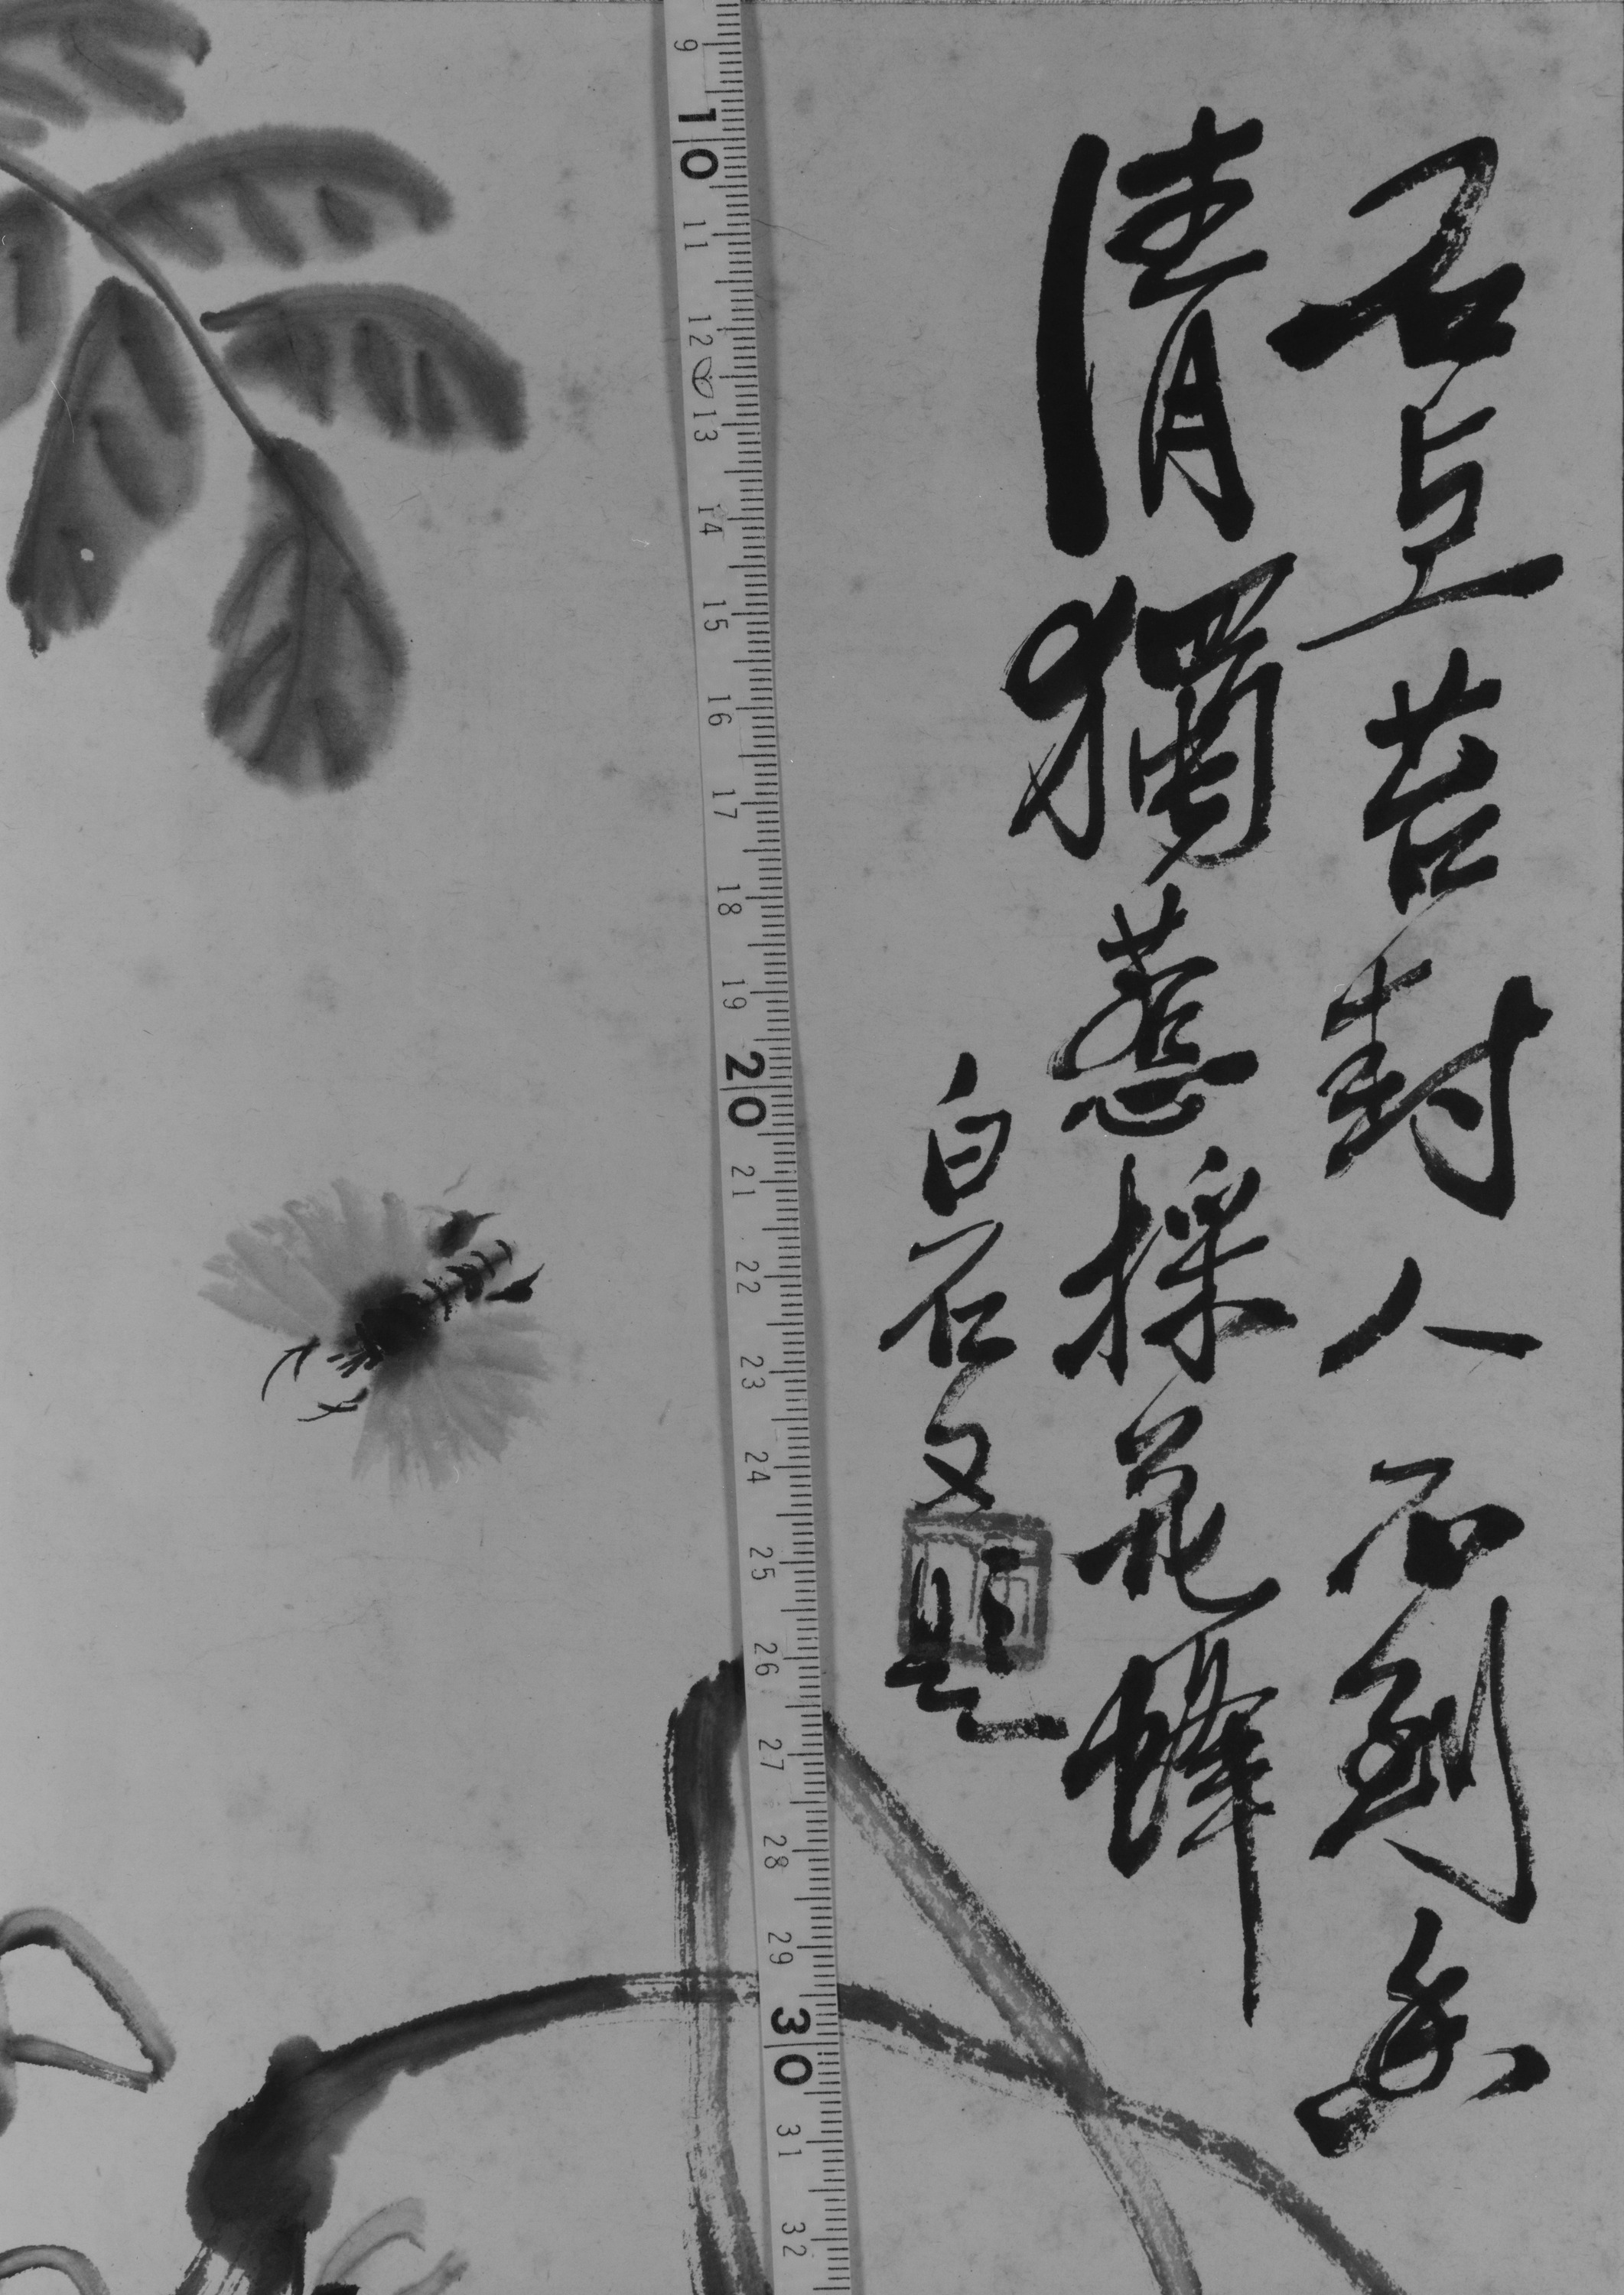 石苔封人不到香
清獨惹採花蜂
白石又題
9 10 11 12 13 14 15 16 17 18 19 20 21 22 23 24 25 26 27 28 29 30 31 32